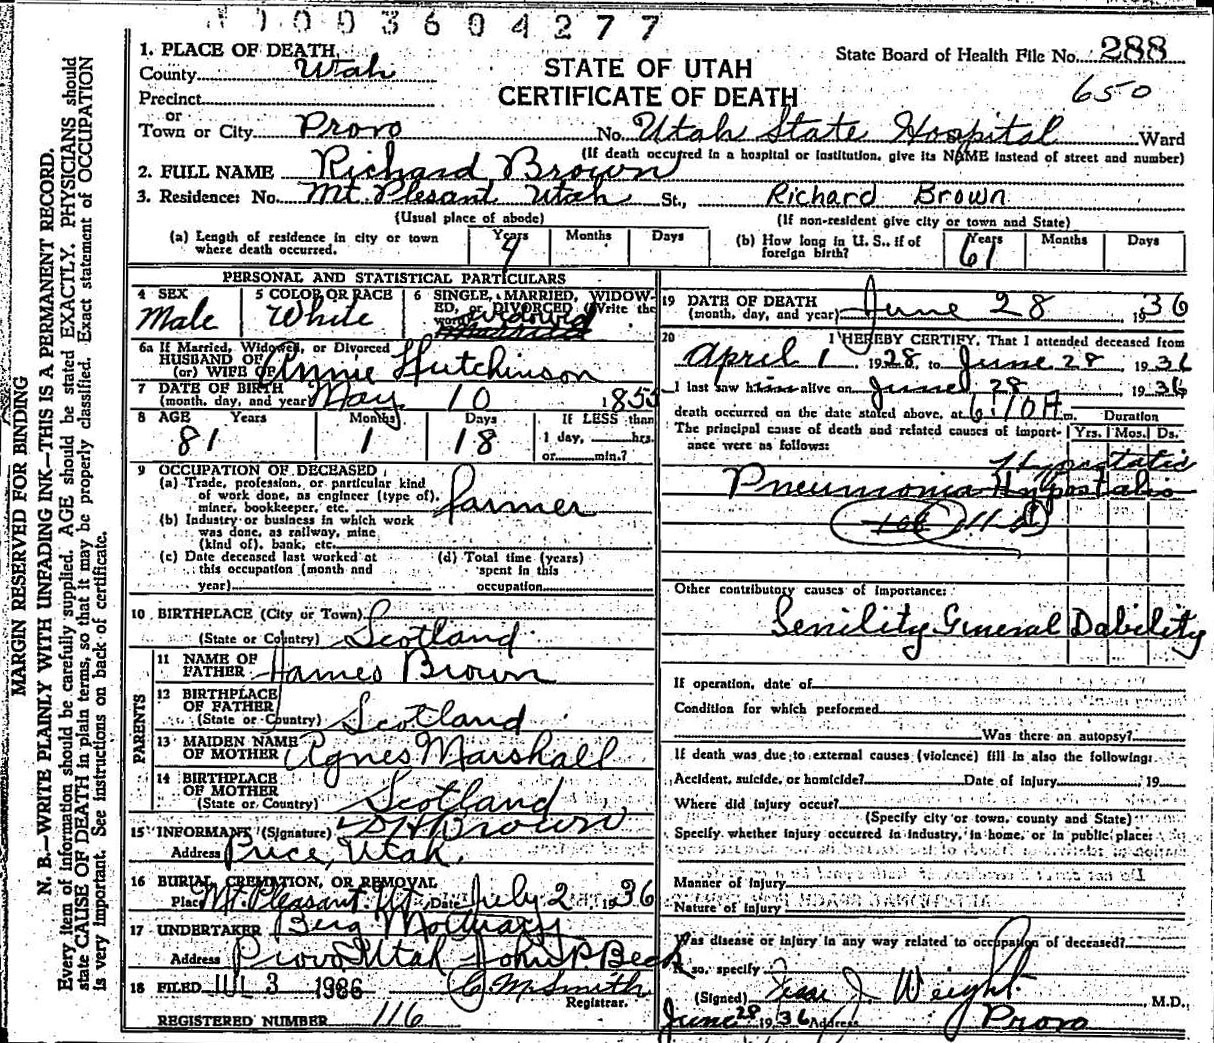 1003604277
1. PLACE OF DEATH
State Board of Health File No. 288
County Utah
STATE OF UTAH
650
Precinct
CERTIFICATE OF DEATH
or
Town or City Provo No. Utah State Hospital Ward
(If death occurred in a hospital or institution, give its NAME instead of street and number)
2. FULL NAME Richard Brown
3. Residence: No. Mt. Plesant Utah St., Richard Brown
(Usual place of abode) (If non-resident give city or town and State)
(a) Length of residence in city or town where death occurred. Years Months Days
(b) How long in U. S., if of foreign birth? Years 61 Months Days
PERSONAL AND STATISTICAL PARTICULARS
4 SEX Male
5 COLOR OR RACE White
6 SINGLE, MARRIED, WIDOWED, or DIVORCED (Write the word)
6a If Married, Widowed, or Divorced
HUSBAND OF
(or) WIFE OF Annie Hutchinson
7 DATE OF BIRTH
(month, day, and year) May 10 1855
8 AGE Years 81 Months 1 Days 18
If LESS than 1 day, hrs. or min.?
9 OCCUPATION OF DECEASED
(a) Trade, profession, or particular kind of work done, as engineer (type of), miner, bookkeeper, etc. farmer
(b) Industry or business in which work was done, as railway, mine (kind of), bank, etc.
(c) Date deceased last worked at this occupation (month and year)
(d) Total time (years) spent in this occupation
10 BIRTHPLACE (City or Town)
(State or Country) Scotland
PARENTS
11 NAME OF FATHER James Brown
12 BIRTHPLACE OF FATHER
(State or Country) Scotland
13 MAIDEN NAME OF MOTHER Agnes Marshall
14 BIRTHPLACE OF MOTHER
(State or Country) Scotland
15 INFORMANT (Signature) Brown
Address Price, Utah.
16 BURIAL, CREMATION, OR REMOVAL
Place Mt. Pleasant Ut. Date July 2 1936
17 UNDERTAKER Berg Mortuary
Address Provo Utah John P. Beck
18 FILED JUL 3 1936 C. M. Smith
Registrar.
REGISTERED NUMBER 116
19 DATE OF DEATH
(month, day, and year) June 28 1936
20 I HEREBY CERTIFY, That I attended deceased from
April 1, 1928, to June 28, 1936
I last saw him alive on June 28 1936
death occurred on the date stated above, at 6:10 A m.
The principal cause of death and related causes of importance were as follows:
Duration
Yrs. Mos. Ds.
Hypostatic
Pneumonia Hypostatic
Other contributory causes of importance:
Senility General Dability
If operation, date of
Condition for which performed
Was there an autopsy?
If death was due to external causes (violence) fill in also the following:
Accident, suicide, or homicide? Date of injury 19
Where did injury occur?
(Specify city or town, county and State)
Specify whether injury occurred in industry, in home, or in public place:
Manner of injury
Nature of injury
Was disease or injury in any way related to occupation of deceased?
If so, specify
(Signed) J. Weight, M.D.,
June 28 1936 Address Provo
MARGIN RESERVED FOR BINDING
N. B.—WRITE PLAINLY WITH UNFADING INK—THIS IS A PERMANENT RECORD.
Every item of information should be carefully supplied. AGE should be stated EXACTLY. PHYSICIANS should
state CAUSE OF DEATH in plain terms, so that it may be properly classified. Exact statement of OCCUPATION
is very important. See instructions on back of certificate.